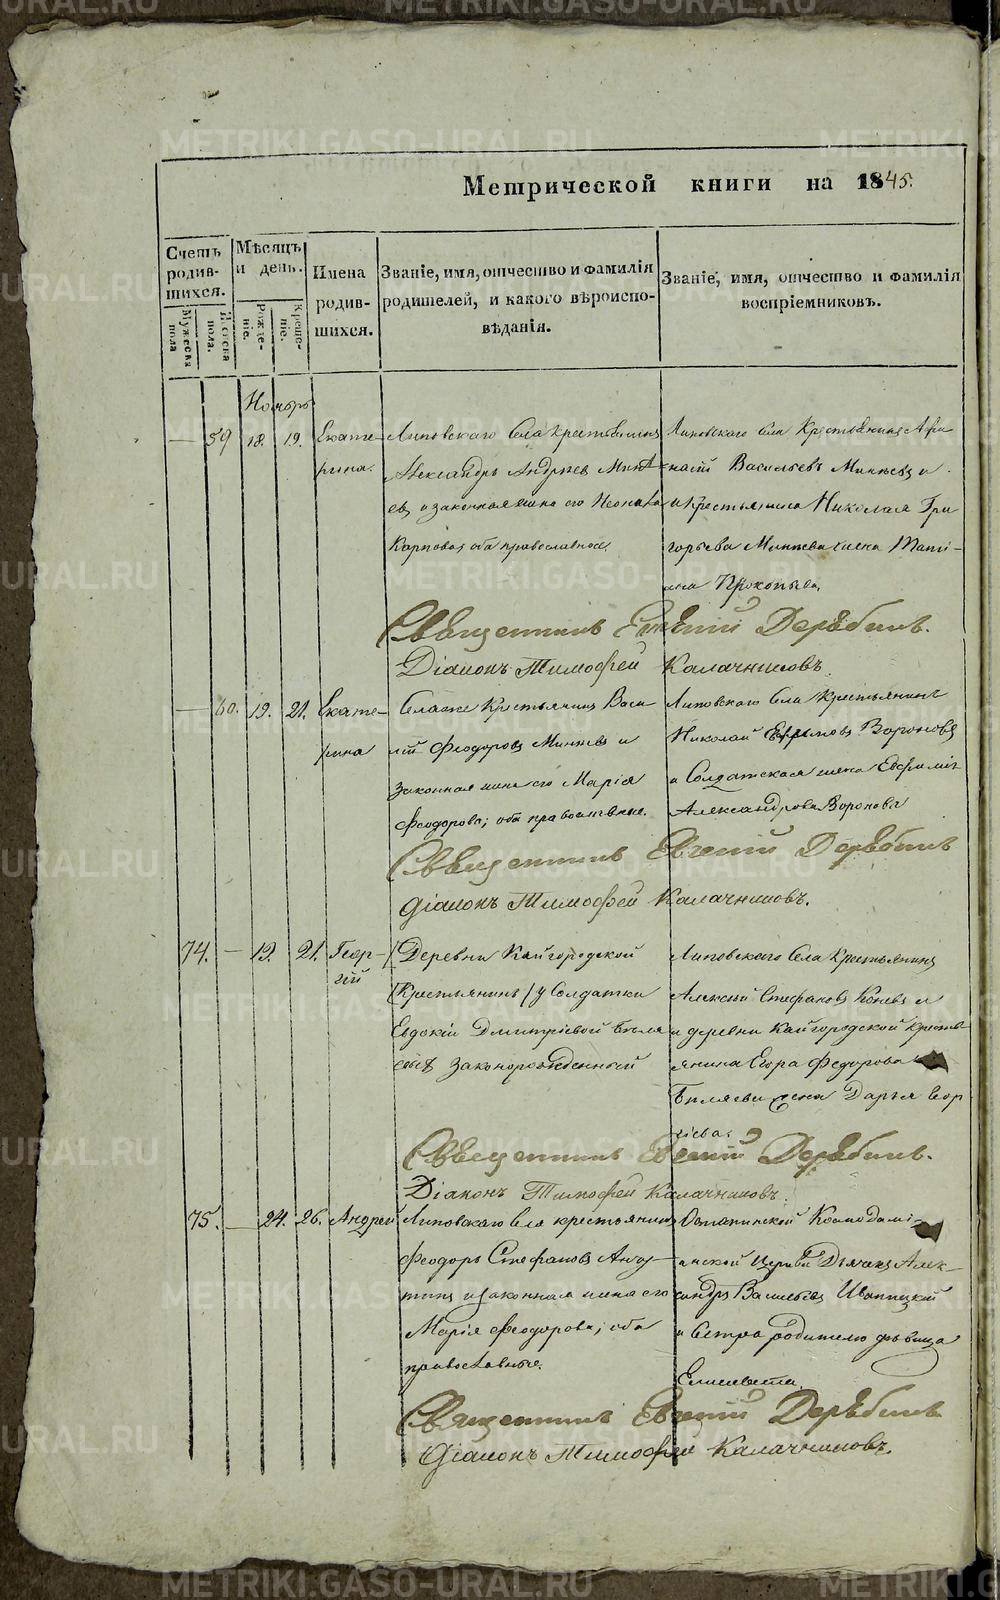 Метрической книги на 1845.
Счетъ родившихся.
Мѣсяцъ и день.
Имена родившихся.
Званіе, имя, отчество и фамилія родителей, и какого вѣроисповѣданія.
Званіе, имя, отчество и фамилія воспріемниковъ.
Мужеска пола
Женска пола.
Рожденіе.
Крещеніе.
Ноябрь
— 59 18. 19. Екате-
рина.
Липовскаго Села крестьянинъ
Александръ Андреев
и законная жена его
Карпова, оба православные.
Липовскаго села Крестьянинъ Афа-
насій Васильевъ и
крестьянина Николая Гри
горьева жена Тати-
ана Прокопьева.
Священникъ Евгеній Дерябинъ.
Діаконъ Тимофей Калачниковъ.
— 60. 19. 21. Екате-
рина
Селаже Крестьянинъ Васи-
лій Феодоровъ и
законная жена его Марія
Феодорова; оба православные.
Липовскаго Села Крестьянинъ
Николай Вороновъ
и Солдатская жена
Александрова Воронова
Священникъ Евгеній Дерябинъ
Діаконъ Тимофей Калачниковъ.
74. — 19. 21. Геор-
гій
Деревни Кайгородской
(Крестьянинъ) у Солдатки
Евдокіи Дмитріевой Бѣля
евой законорожденный
Липовскаго Села Крестьянинъ
Алексій Стефановъ и
деревни Кайгородской кресть-
янина Егора Федорова
Бѣляева жена Дарья Егор
ьева.
Священникъ Евгеній Дерябинъ.
Діаконъ Тимофей Калачниковъ.
75. — 24. 26. Андрей
Липовскаго села крестьянинъ
Феодоръ Стефановъ
и законная жена его
Марія Феодорова; оба
православные.
Космодамі-
анской церкви Алек-
сандръ Васильевъ
и Сестра родителю дѣвица
Елисавета.
Священникъ Евгеній Дерябинъ
Діаконъ Тимофей Калачниковъ.
METRIKI.GASO-URAL.RU